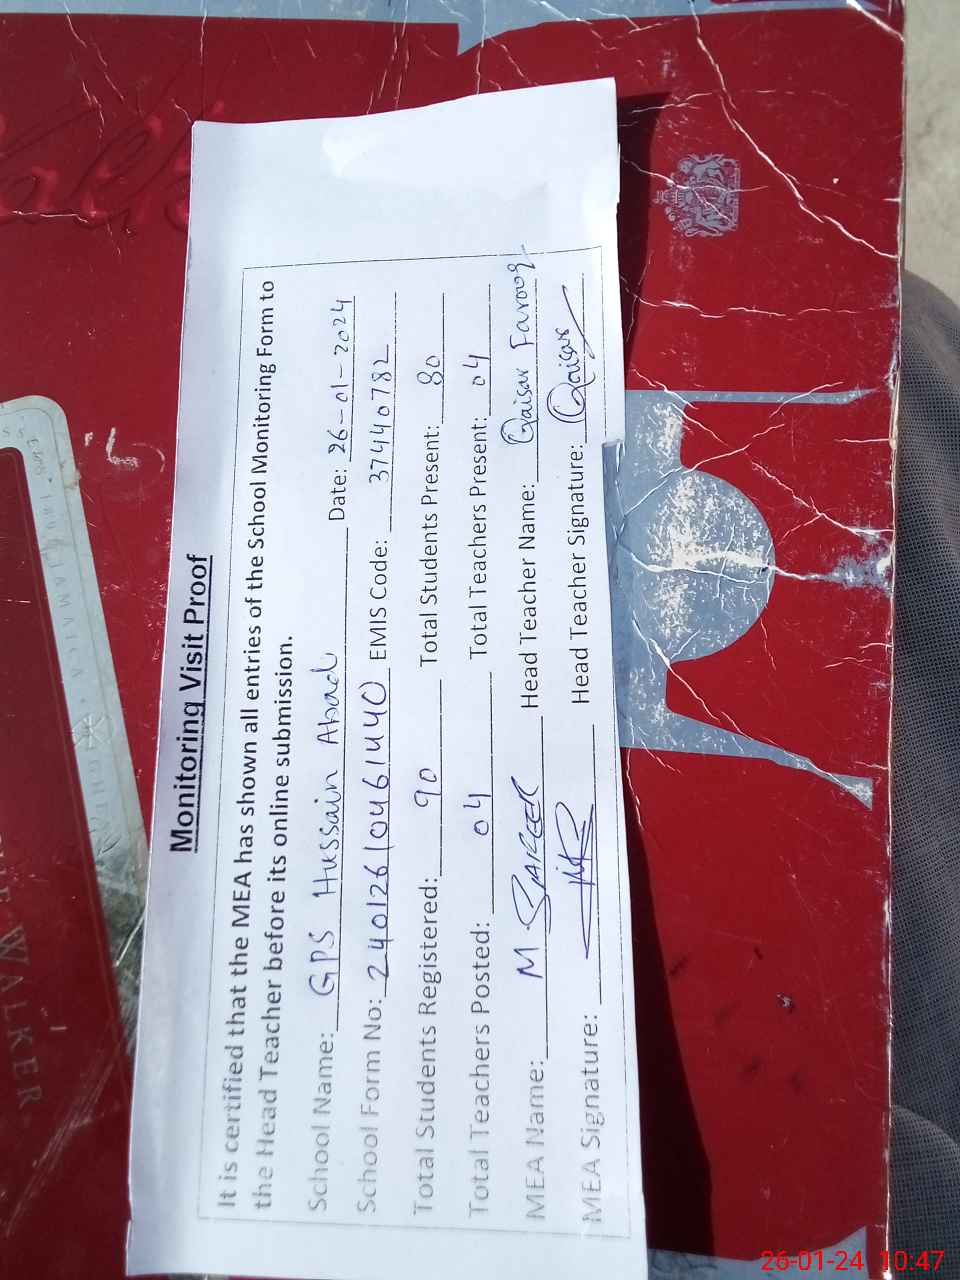 Monitoring Visit Proof
It is certified that the MEA has shown all entries of the School Monitoring Form to
the Head Teacher before its online submission.
School Name: GPS Hussain Abad Date: 26-01-2024
School Form No: 24012610461440 EMIS Code: 37440782
Total Students Registered: 90 Total Students Present: 80
Total Teachers Posted: 04 Total Teachers Present: 04
MEA Name: M Head Teacher Name: Qaisar Farooq
MEA Signature: Head Teacher Signature: Qaisar
WALKER
26-01-24 10:47